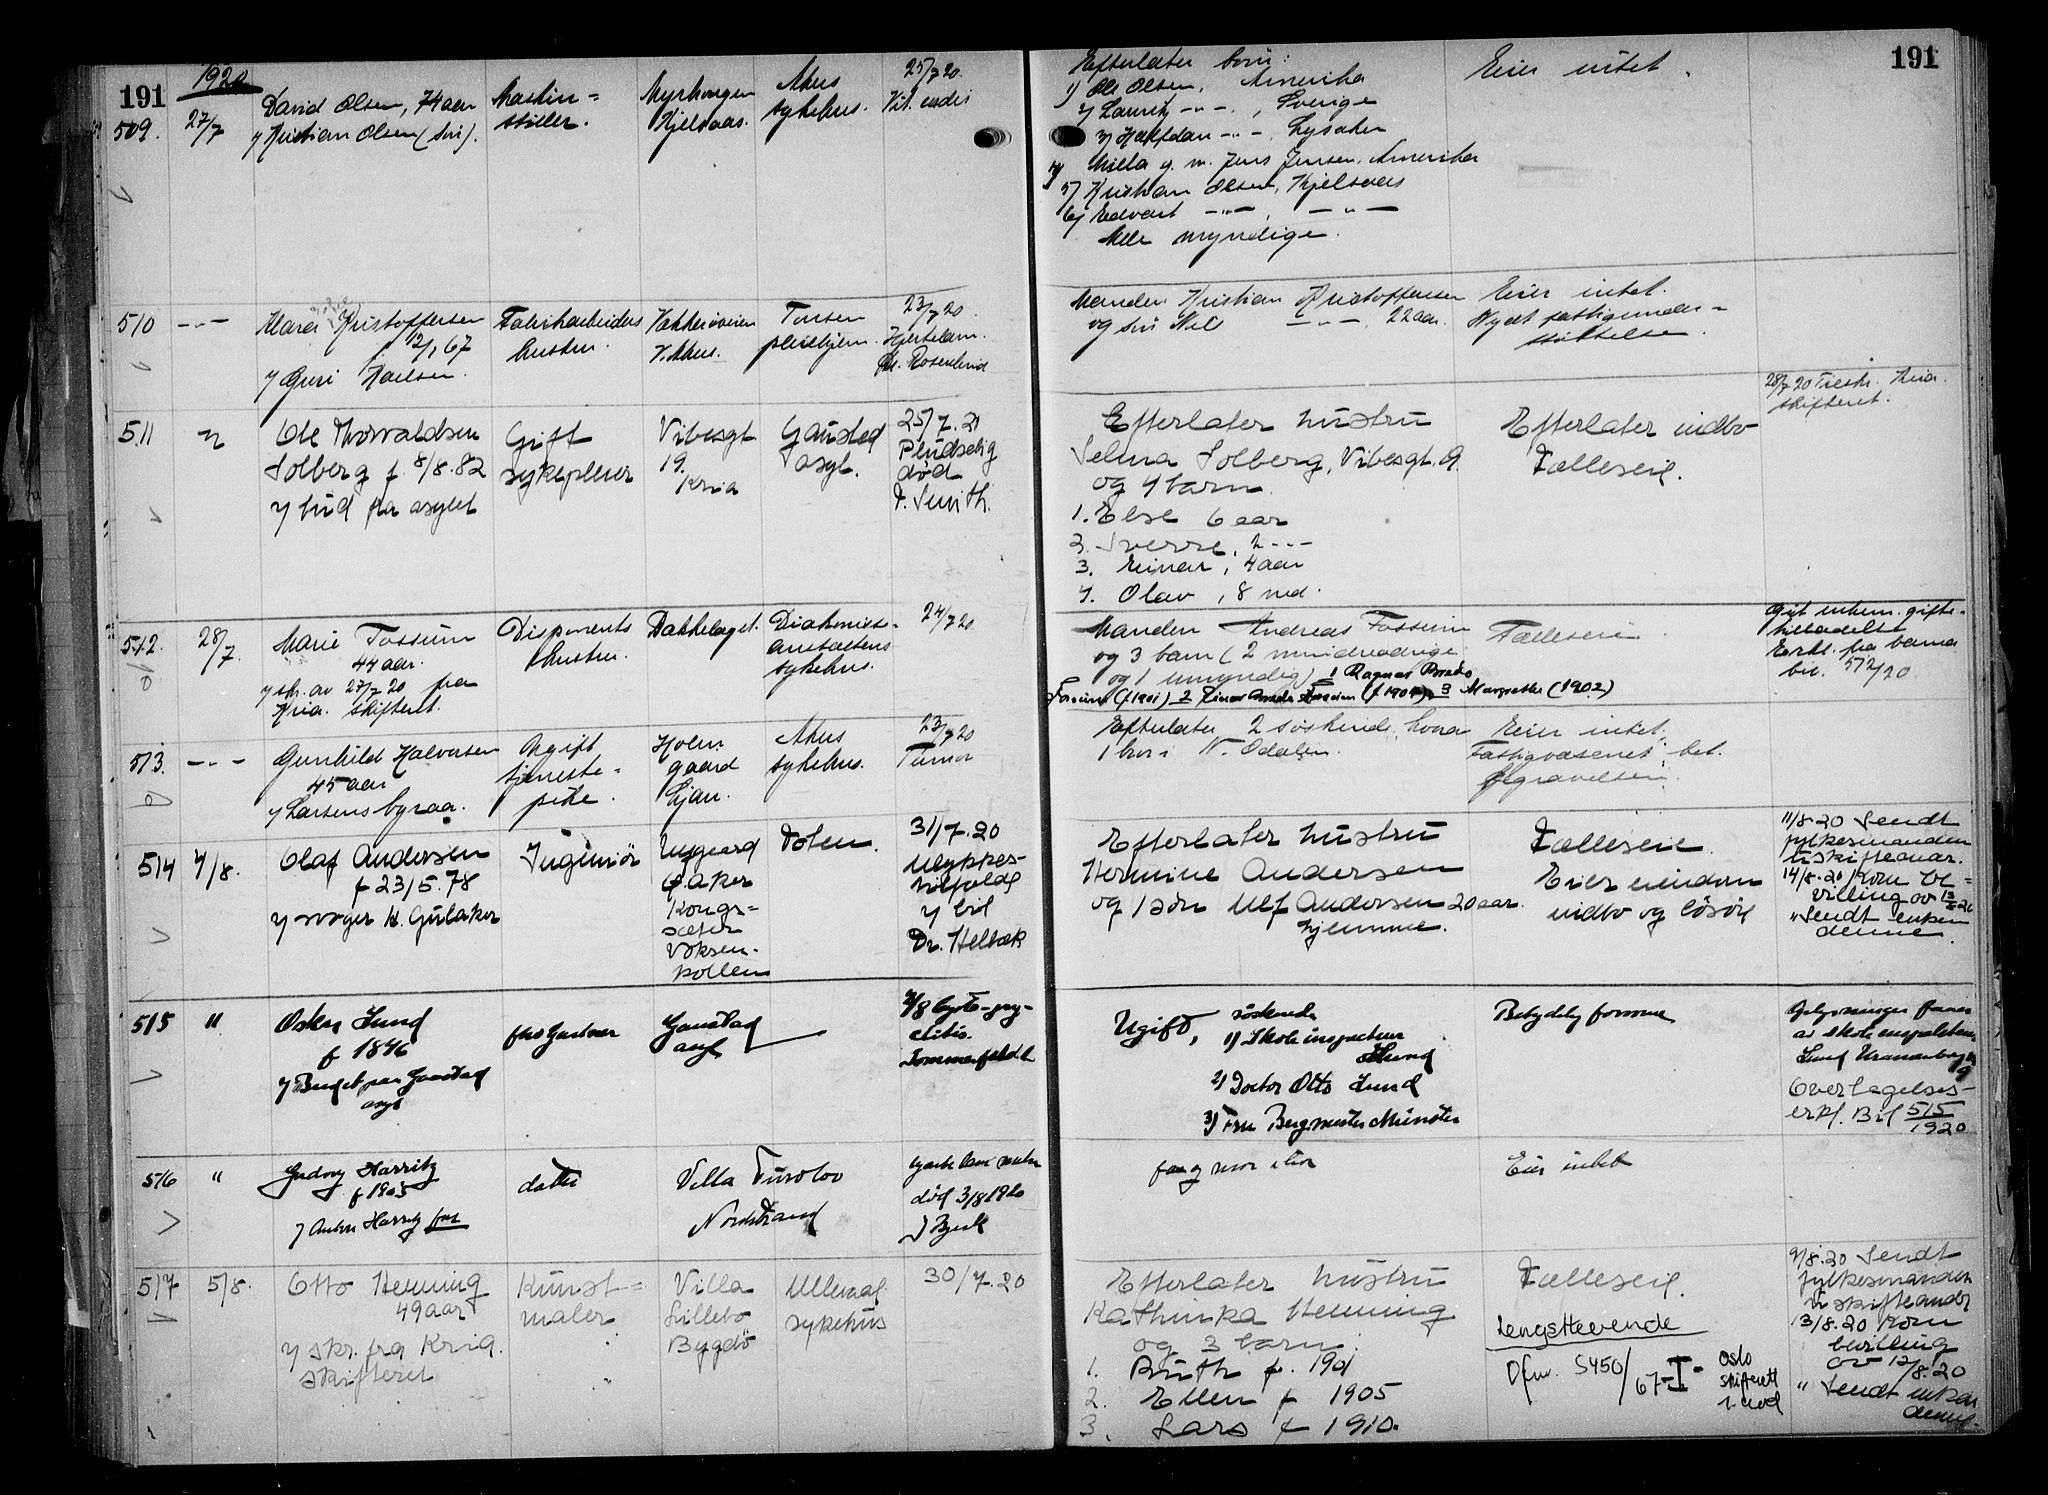 191
1920
509.
27/7
David Olsen, 74 aar
v/ Kristian Olsen (søn).
Maskin=
stiller.
Myrhaugen
Kjelsaas.
Akus
sykehus.
25/7 20.
Vit. cordis
Efterlater børn:
1) Ole Olsen, Amerika
2/ Lauritz -"- , Sverige
3/ Halfdan -"- , Lysaker
4/ Milla g. m. Jens Jensen, Amerika
5/ Kristian Olsen, Kjelsaas
6/ Edvart -"- , -"-
Alle myndige.
Eier intet.
191
510
-"-
Kristoffersen
f. 12/1 67
v/ Guri
Fabrikarbeiders
hustru.
Vækkerøveien
V. Aker.
Tonsen
pleiehjem.
23/7 20.
Hjertelam.
Rosenlund
Manden Kristian Kristoffersen
og søn Nils -"- , 22 aar.
Eier intet.
Nydt fattigunder=
støttelse.
511
"
Ole Thorvaldsen
Solberg f. 8/8.82
v/ bud fra asylet
Gift
sykepleier
Vibesgt
19.
Kria
Gausted
asyl.
25/7.20
Pludselig
død
D. Smith.
Efterlater hustru
Selma Solberg, Vibesgt. 19.
og 4 barn.
1. Else 6 aar
2. Sverre, 2 -"-
3. Einar, 4 aar
4. Olav, 8 md.
Efterlater indbo
Fælleseie.
28/7 20 Tilskr. Kria.
skifteret.
512.
28/7.
Marie Fossum
44 aar.
v/ skr. av 27/7 20 fra
Kria. skifteret.
Disponents
hustru.
Bakkelaget.
Diakonisse=
anstaltens
sykehus.
24/7 20
Manden Andreas Fossum
og 3 barn (2 mindreaarige
og 1 umyndig) 1 Ragnar
Fossum (f 1901) 2 Fossum (f 1904) 3 Margrethe (1902)
Fælleseie
Gift enkem. gifte=
tilladelse
Erkl. fra barna
bil. 512/20.
513.
-"-
Gunhild Halvorsen
45 aar
v/ Larsens byraa.
Ugift
tjeneste=
pike.
Holm
gaard
Ljan.
Akus
sykehus.
23/7 20
Tumor
Efterlater 2 søskend, hvorav
1 bor i N. Odalen.
Eier intet.
Fattigvæsenet bet.
begravelsen.
514
4/8.
Olaf Andersen
f 23/5.78
v/ svoger H. Gulaker
Ingeniør
V. Aker
Kongs=
sæter
Voksen-
kollen
Toten.
31/7.20
Ulykkes-
tilfælde
v/ bil
Dr. Helbæk
Efterlater hustru
Hermine Andersen
og 1 søn Ulf Andersen 20 aar.
hjemme.
Fælleseie.
Eier eiendom
indbo og løsøre
11/8.20 Sendt
fylkesmanden
til skifteavd.
14/8.20 Kom be=
villing av 13/8 20
" Sendt enken
denne.
515
"
Oskar Lund
f 1846
v/ Bud fra Gaustad
asyl
fhv Gartner
Gaustad
asyl
2/8 Cysto-pye-
litis.
Sommerfeldt
Ugift,
søskende
1) Skoleinspektør
Lund
2) Doctor Otto Lund
3) Fru Bergmester Münster
Betydelig formue
Oplysninger faaes
av skoleinspektør
Lund
19
Overtagelses-
erkl. Bil 515/1920
516
"
Harritz
f 1903
v/ Harritz far
datter
Villa Furulov
Nordstrand
død 3/8 1920
far og mor i live
Eier intet
517
5/8.
Otto Henning
49 aar
v/ skr. fra Kria.
skifteret
Kunst=
maler
Villa
Lillebo
Bygdø
Ulleval
sykehus
30/7.20
Efterlater hustru
Kathinka Henning
og 3 barn:
1. Ruth f. 1901
2. Ellen f 1905
3. Lars f 1910.
Fælleseie.
Lengstlevende
Dfnr. 5450/67-I-
Oslo
skifterett
1. avd
9/8.20 Sendt
fylkesmanden
til skifteavd
13/8.20 Kom
bevilling
av 12/8.20
" Sendt enken
denne.